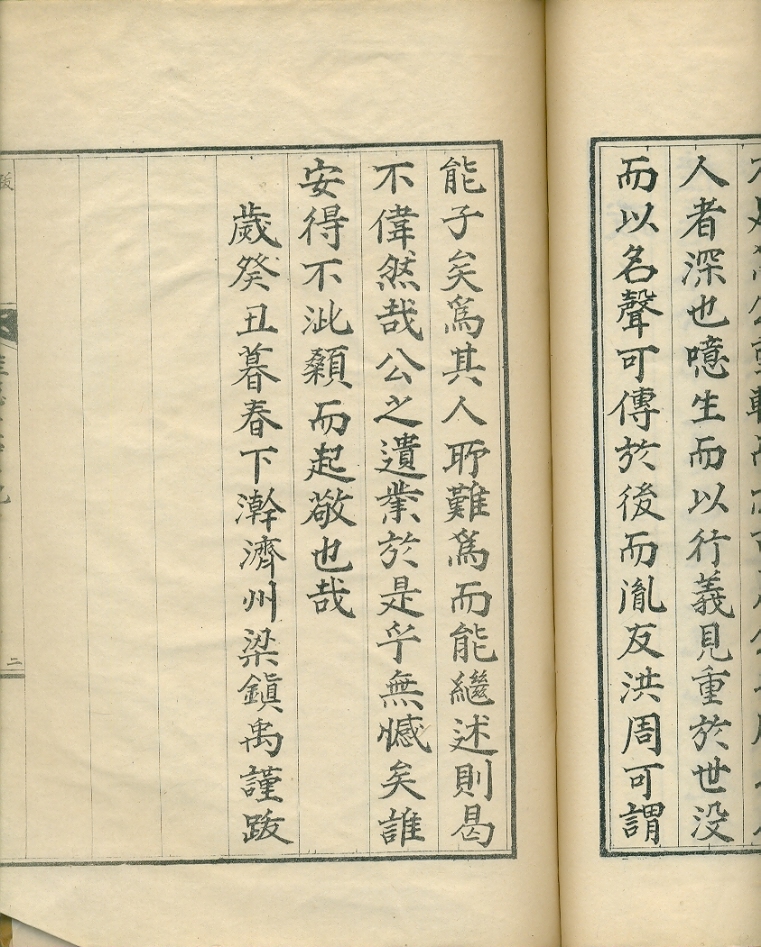 人者深也噫生而以行義見重於世没
而以名聲可傳於後而胤友洪周可謂
能子矣爲其人所難爲而能繼述則曷
不偉然哉公之遺業於是乎無憾矣誰
安得不泚顙而起敬也哉
歲癸丑暮春下澣濟州梁鎭禹謹跋
二